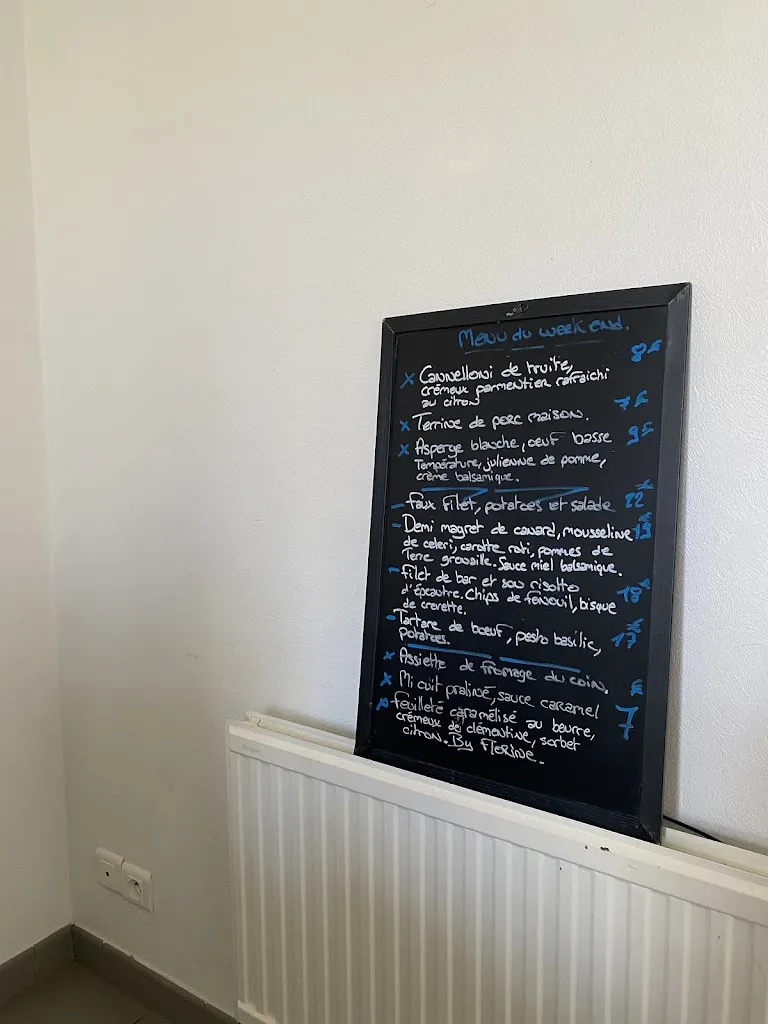 Menu du week end.
8€
x Cannelloni de truite,
crémeux parmentier rafraichi
au citron
7€
x Terrine de porc maison.
9€
x Asperge blanche, oeuf basse
Température, julienne de pomme,
crème balsamique.
- Faux filet, potatoes et salade 22€
- Demi magret de canard, mousseline 19€
de celeri, carotte roti, pommes de
Terre grenaille. Sauce miel balsamique.
- filet de bar et son risotto
d'épeautre. Chips de fenouil, bisque 18€
de crevette.
- Tartare de boeuf, pesto basilic, 17€
potatoes.
x Assiette de fromage du coin.
x Mi cuit praliné, sauce caramel
x feuilleté caramélisé au beurre, 7€
crémeux de clémentine, sorbet
citron. By Florine.